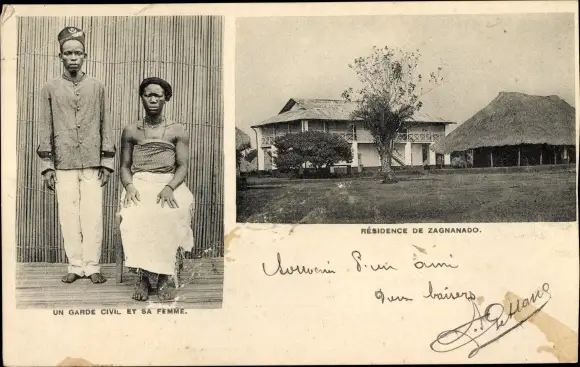 UN GARDE CIVIL ET SA FEMME.
RÉSIDENCE DE ZAGNANADO.
Souvenir d'un ami